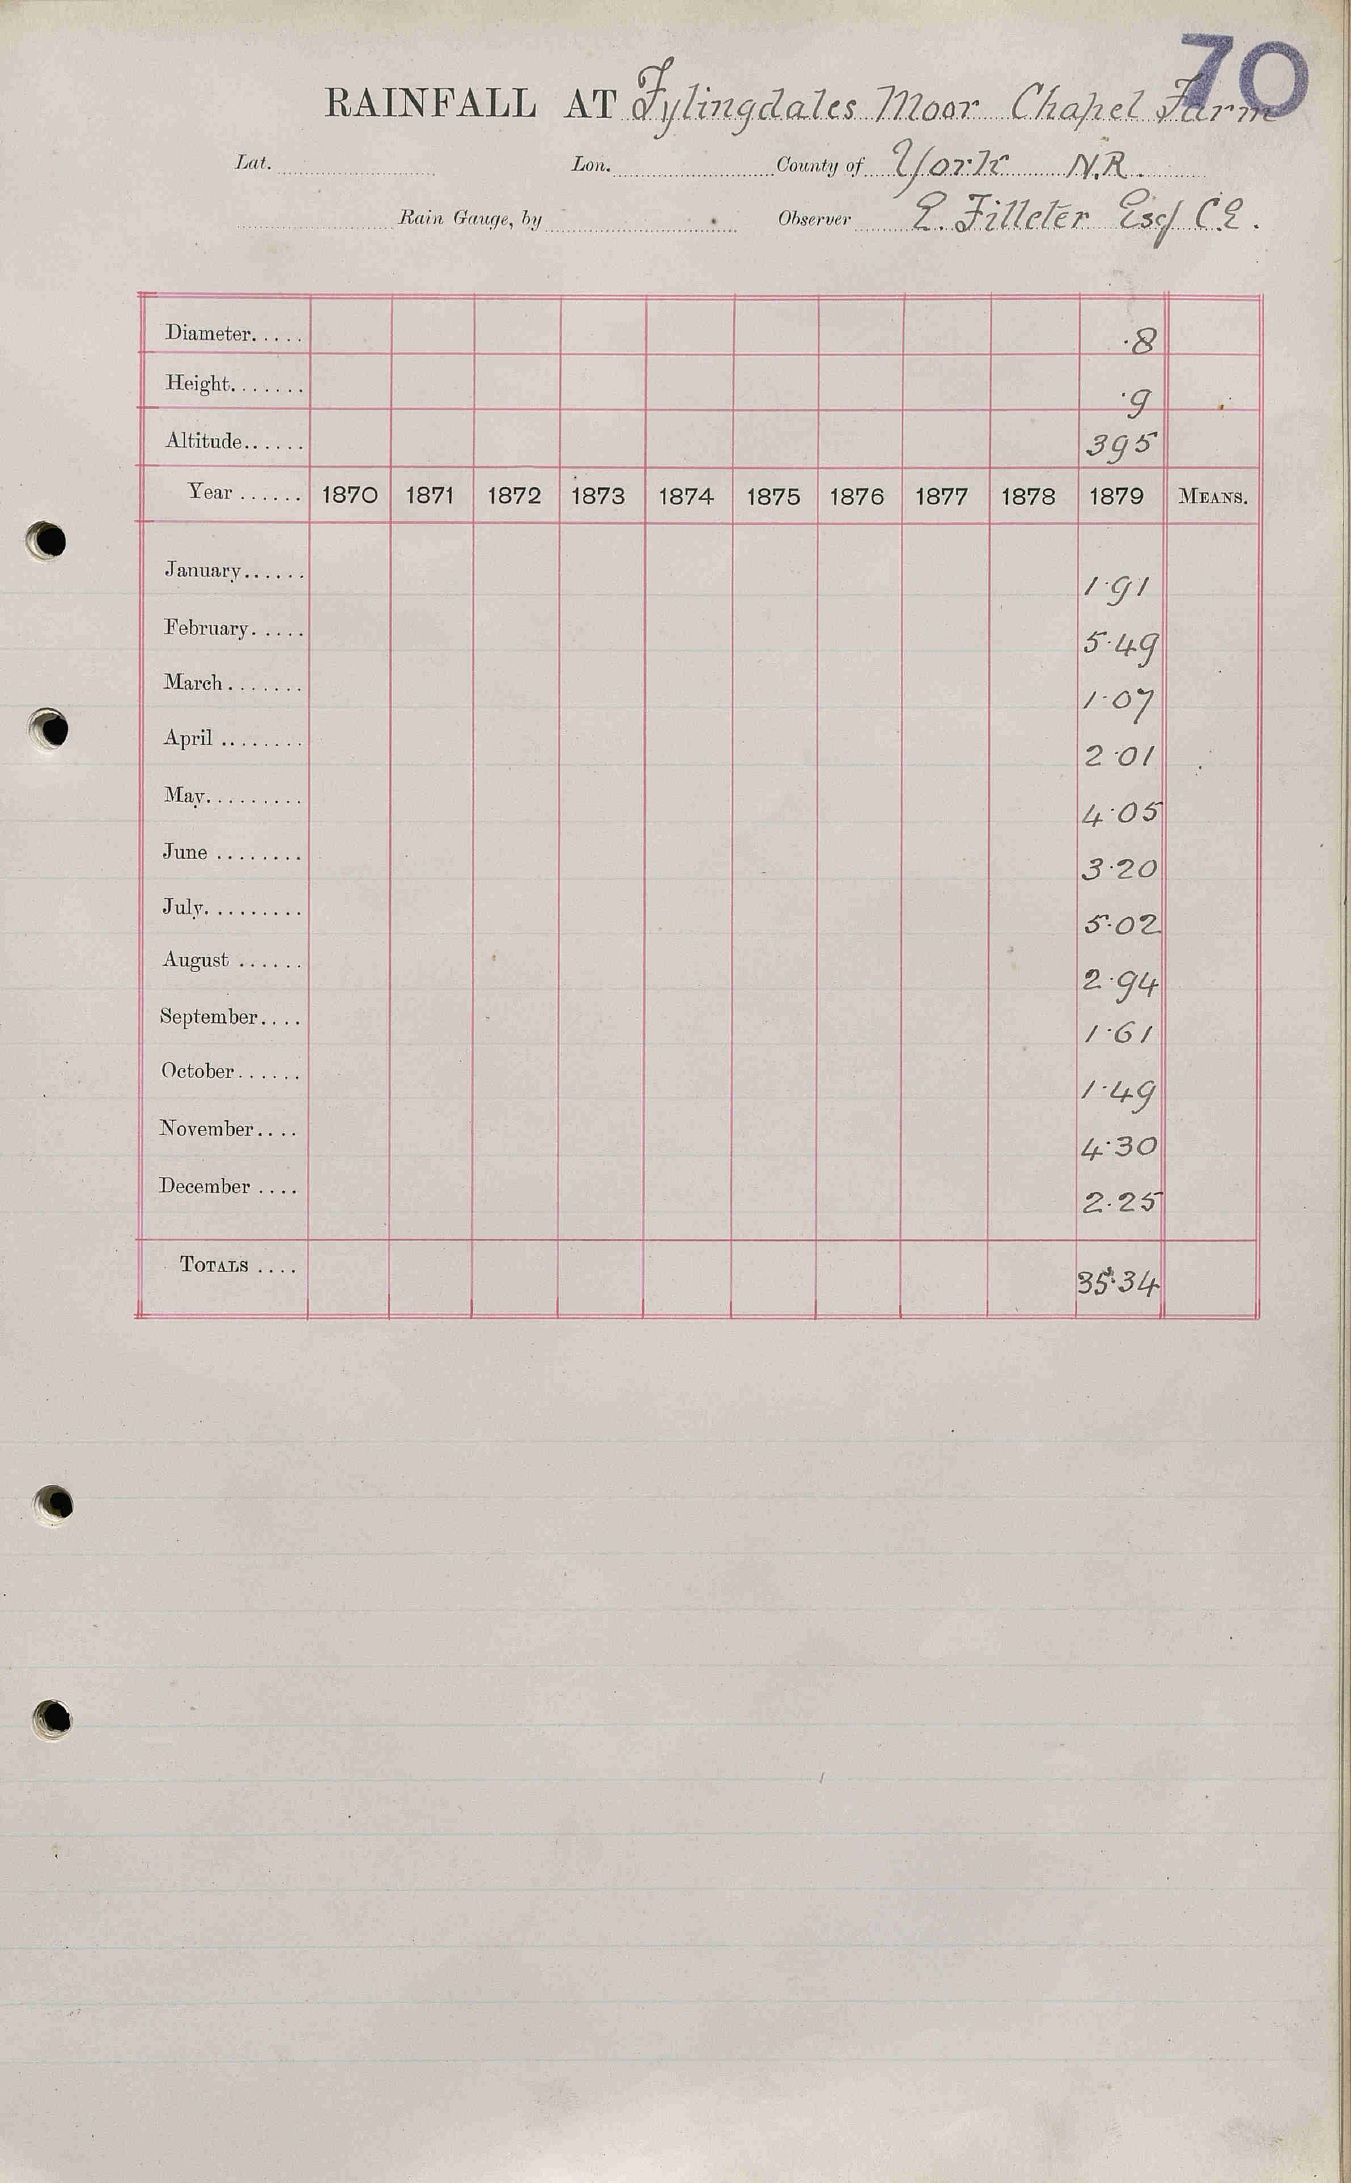 70
RAINFALL AT Fylingdales Moor Chapel Farm
Lat. Lon. County of York N.R.
Rain Gauge, by Observer E. Filleter Esq C.E.
Diameter..... ·8
Height....... ·9
Altitude...... 395
Year ...... 1870 1871 1872 1873 1874 1875 1876 1877 1878 1879 MEANS.
January...... 1·91
February..... 5·49
March....... 1·07
April ........ 2·01
May......... 4·05
June ........ 3·20
July......... 5·02
August ...... 2·94
September.... 1·61
October...... 1·49
November.... 4·30
December .... 2·25
TOTALS .... 35·34